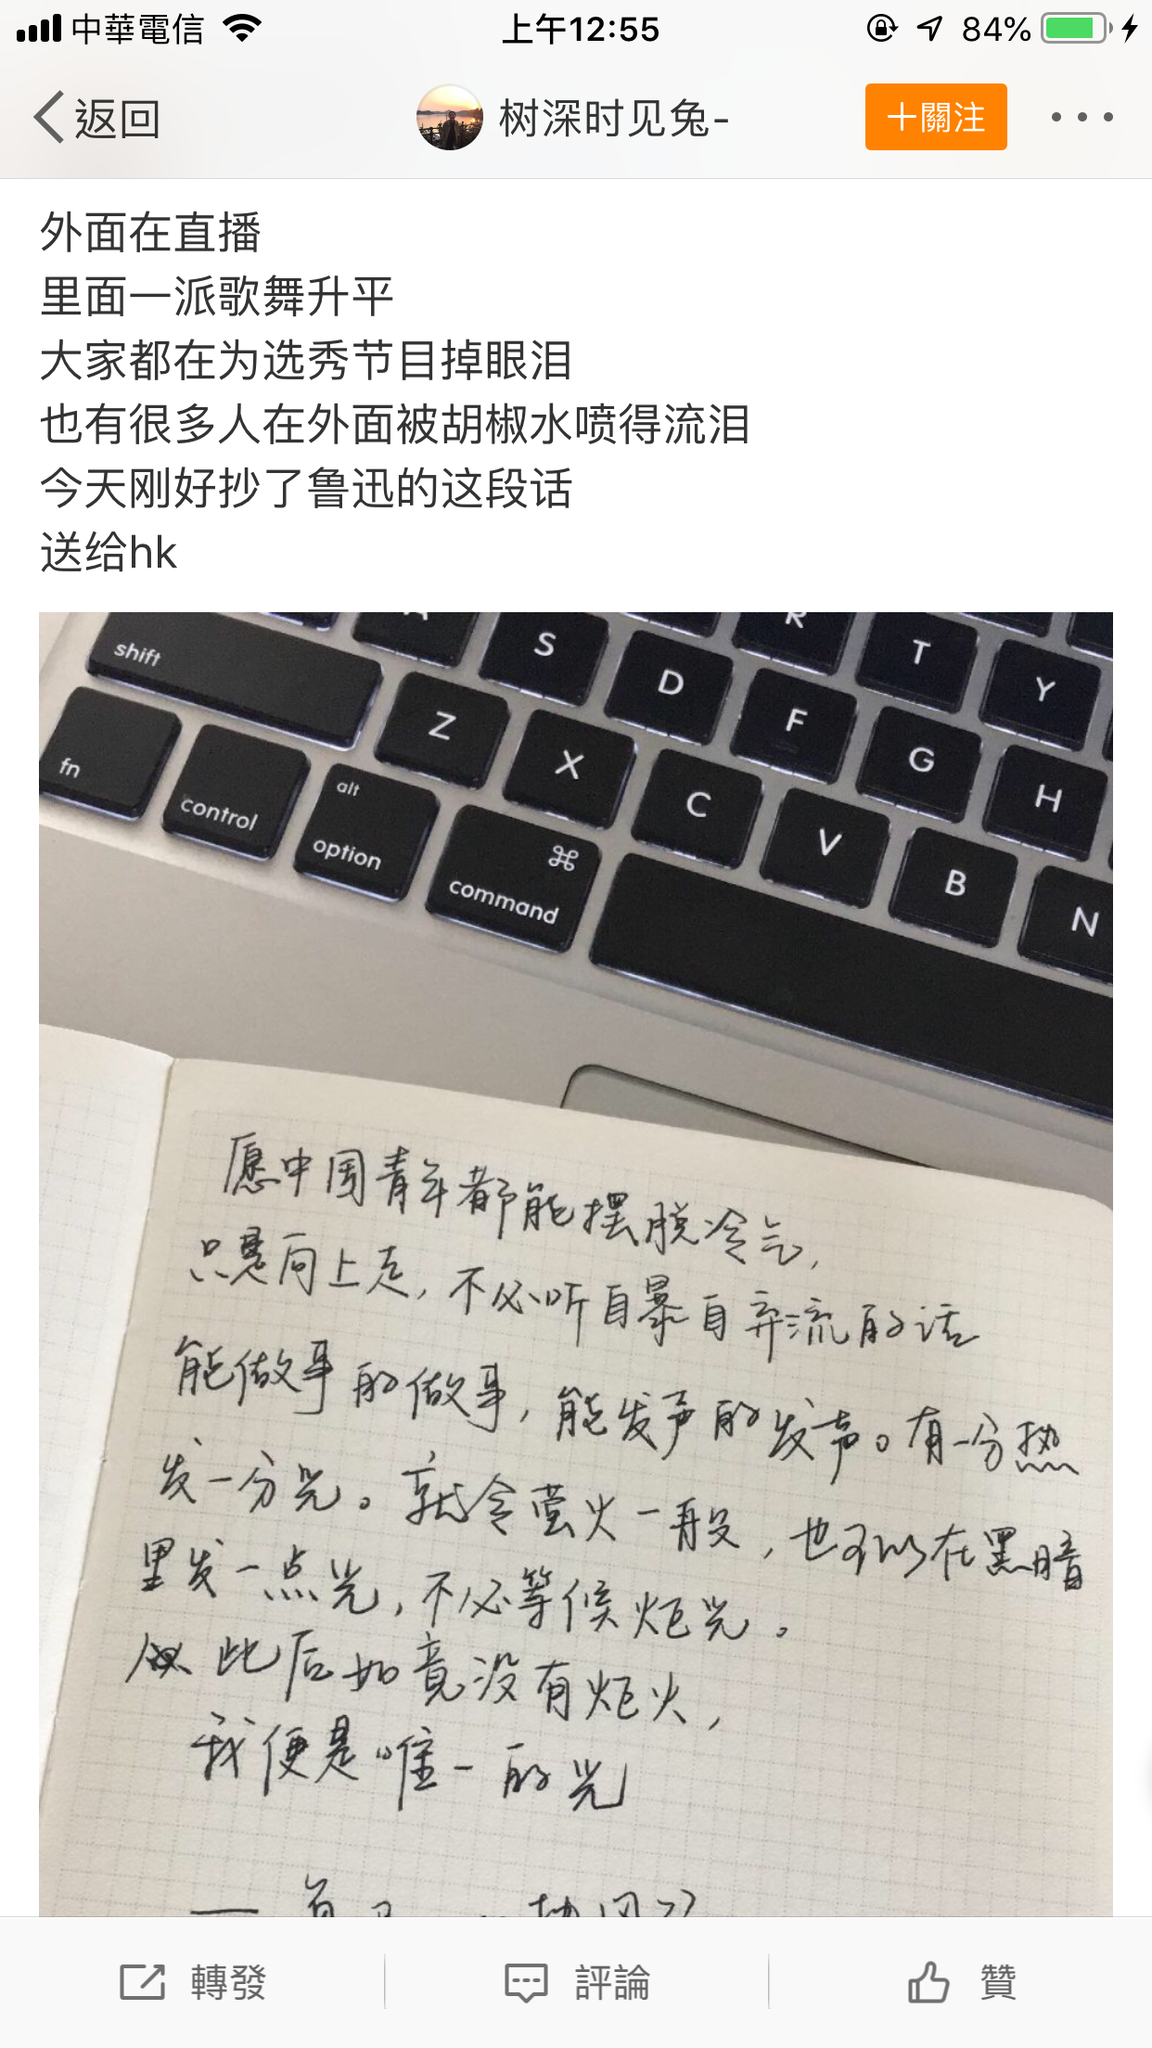 中華電信
上午12:55
84%
返回
树深时见兔-
十關注
外面在直播
里面一派歌舞升平
大家都在为选秀节目掉眼泪
也有很多人在外面被胡椒水喷得流泪
今天刚好抄了鲁迅的这段话
送给hk
R T Y
S D F G H
shift Z X C V B N
fn control alt option ⌘ command
愿中国青年都能摆脱冷气,
只是向上走,不必听自暴自弃流的话
能做事的做事,能发声的发声。有一分热
发一分光。就令萤火一般,也可以在黑暗
里发一点光,不必等候炬光。
此后如竟没有炬火,
我便是唯一的光
轉發
評論
贊